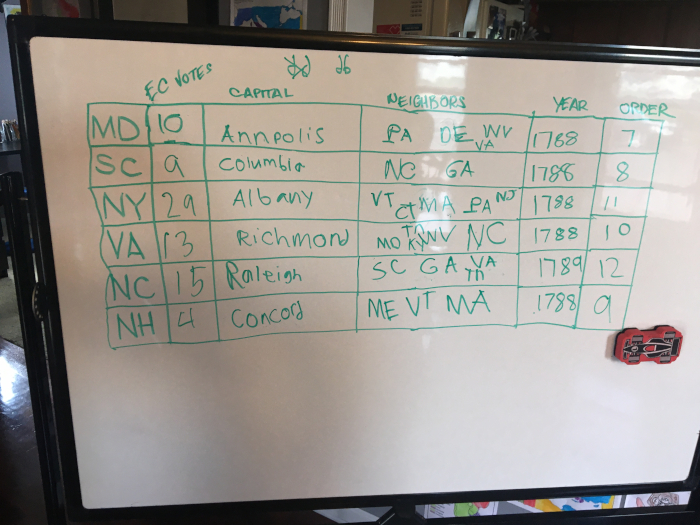 EC VOTES CAPITAL NEIGHBORS YEAR ORDER
MD 10 Annpolis PA DE WV VA 1768 7
SC 9 Columbia NC GA 1788 8
NY 29 Albany VT CT MA PA NJ 1788 11
VA 13 Richmond MD TN KY WV NC 1788 10
NC 15 Raleigh SC GA VA TN 1789 12
NH 4 Concord ME VT MA 1788 9